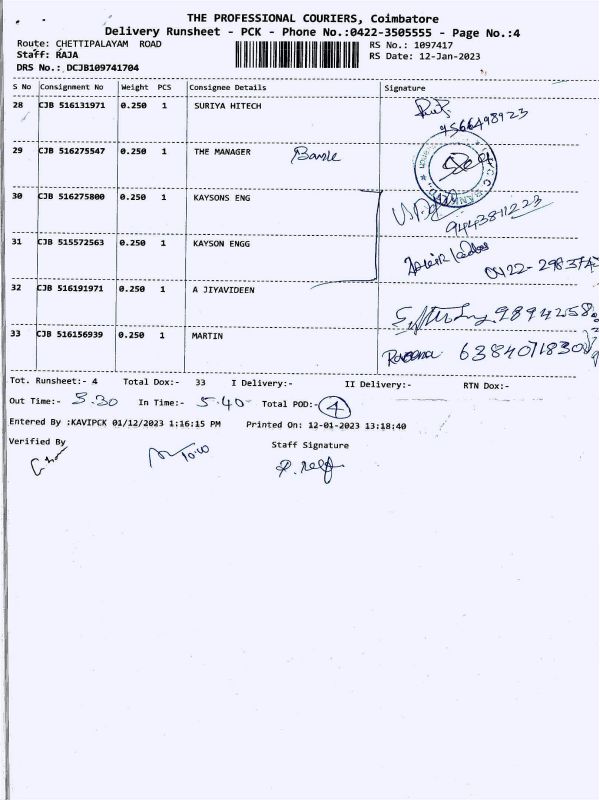 THE PROFESSIONAL COURIERS, Coimbatore
Delivery Runsheet - PCK - Phone No.:0422-3505555 - Page No.:4
Route: CHETTIPALAYAM ROAD RS No.: 1097417
Staff: RAJA RS Date: 12-Jan-2023
DRS No.: DCJB109741704
S No Consignment No Weight PCS Consignee Details Signature
28 CJB 516131971 0.250 1 SURIYA HITECH
9566498923
29 CJB 516275547 0.250 1 THE MANAGER
30 CJB 516275800 0.250 1 KAYSONS ENG
9443811223
31 CJB 515572563 0.250 1 KAYSON ENGG
32 CJB 516191971 0.250 1 A JIYAVIDEEN
33 CJB 516156939 0.250 1 MARTIN
Tot. Runsheet:- 4 Total Dox:- 33 I Delivery:- II Delivery:- RTN Dox:-
Out Time:- 3.30 In Time:- 5.40 Total POD:- 4
Entered By :KAVIPCK 01/12/2023 1:16:15 PM Printed On: 12-01-2023 13:18:40
Verified By Staff Signature